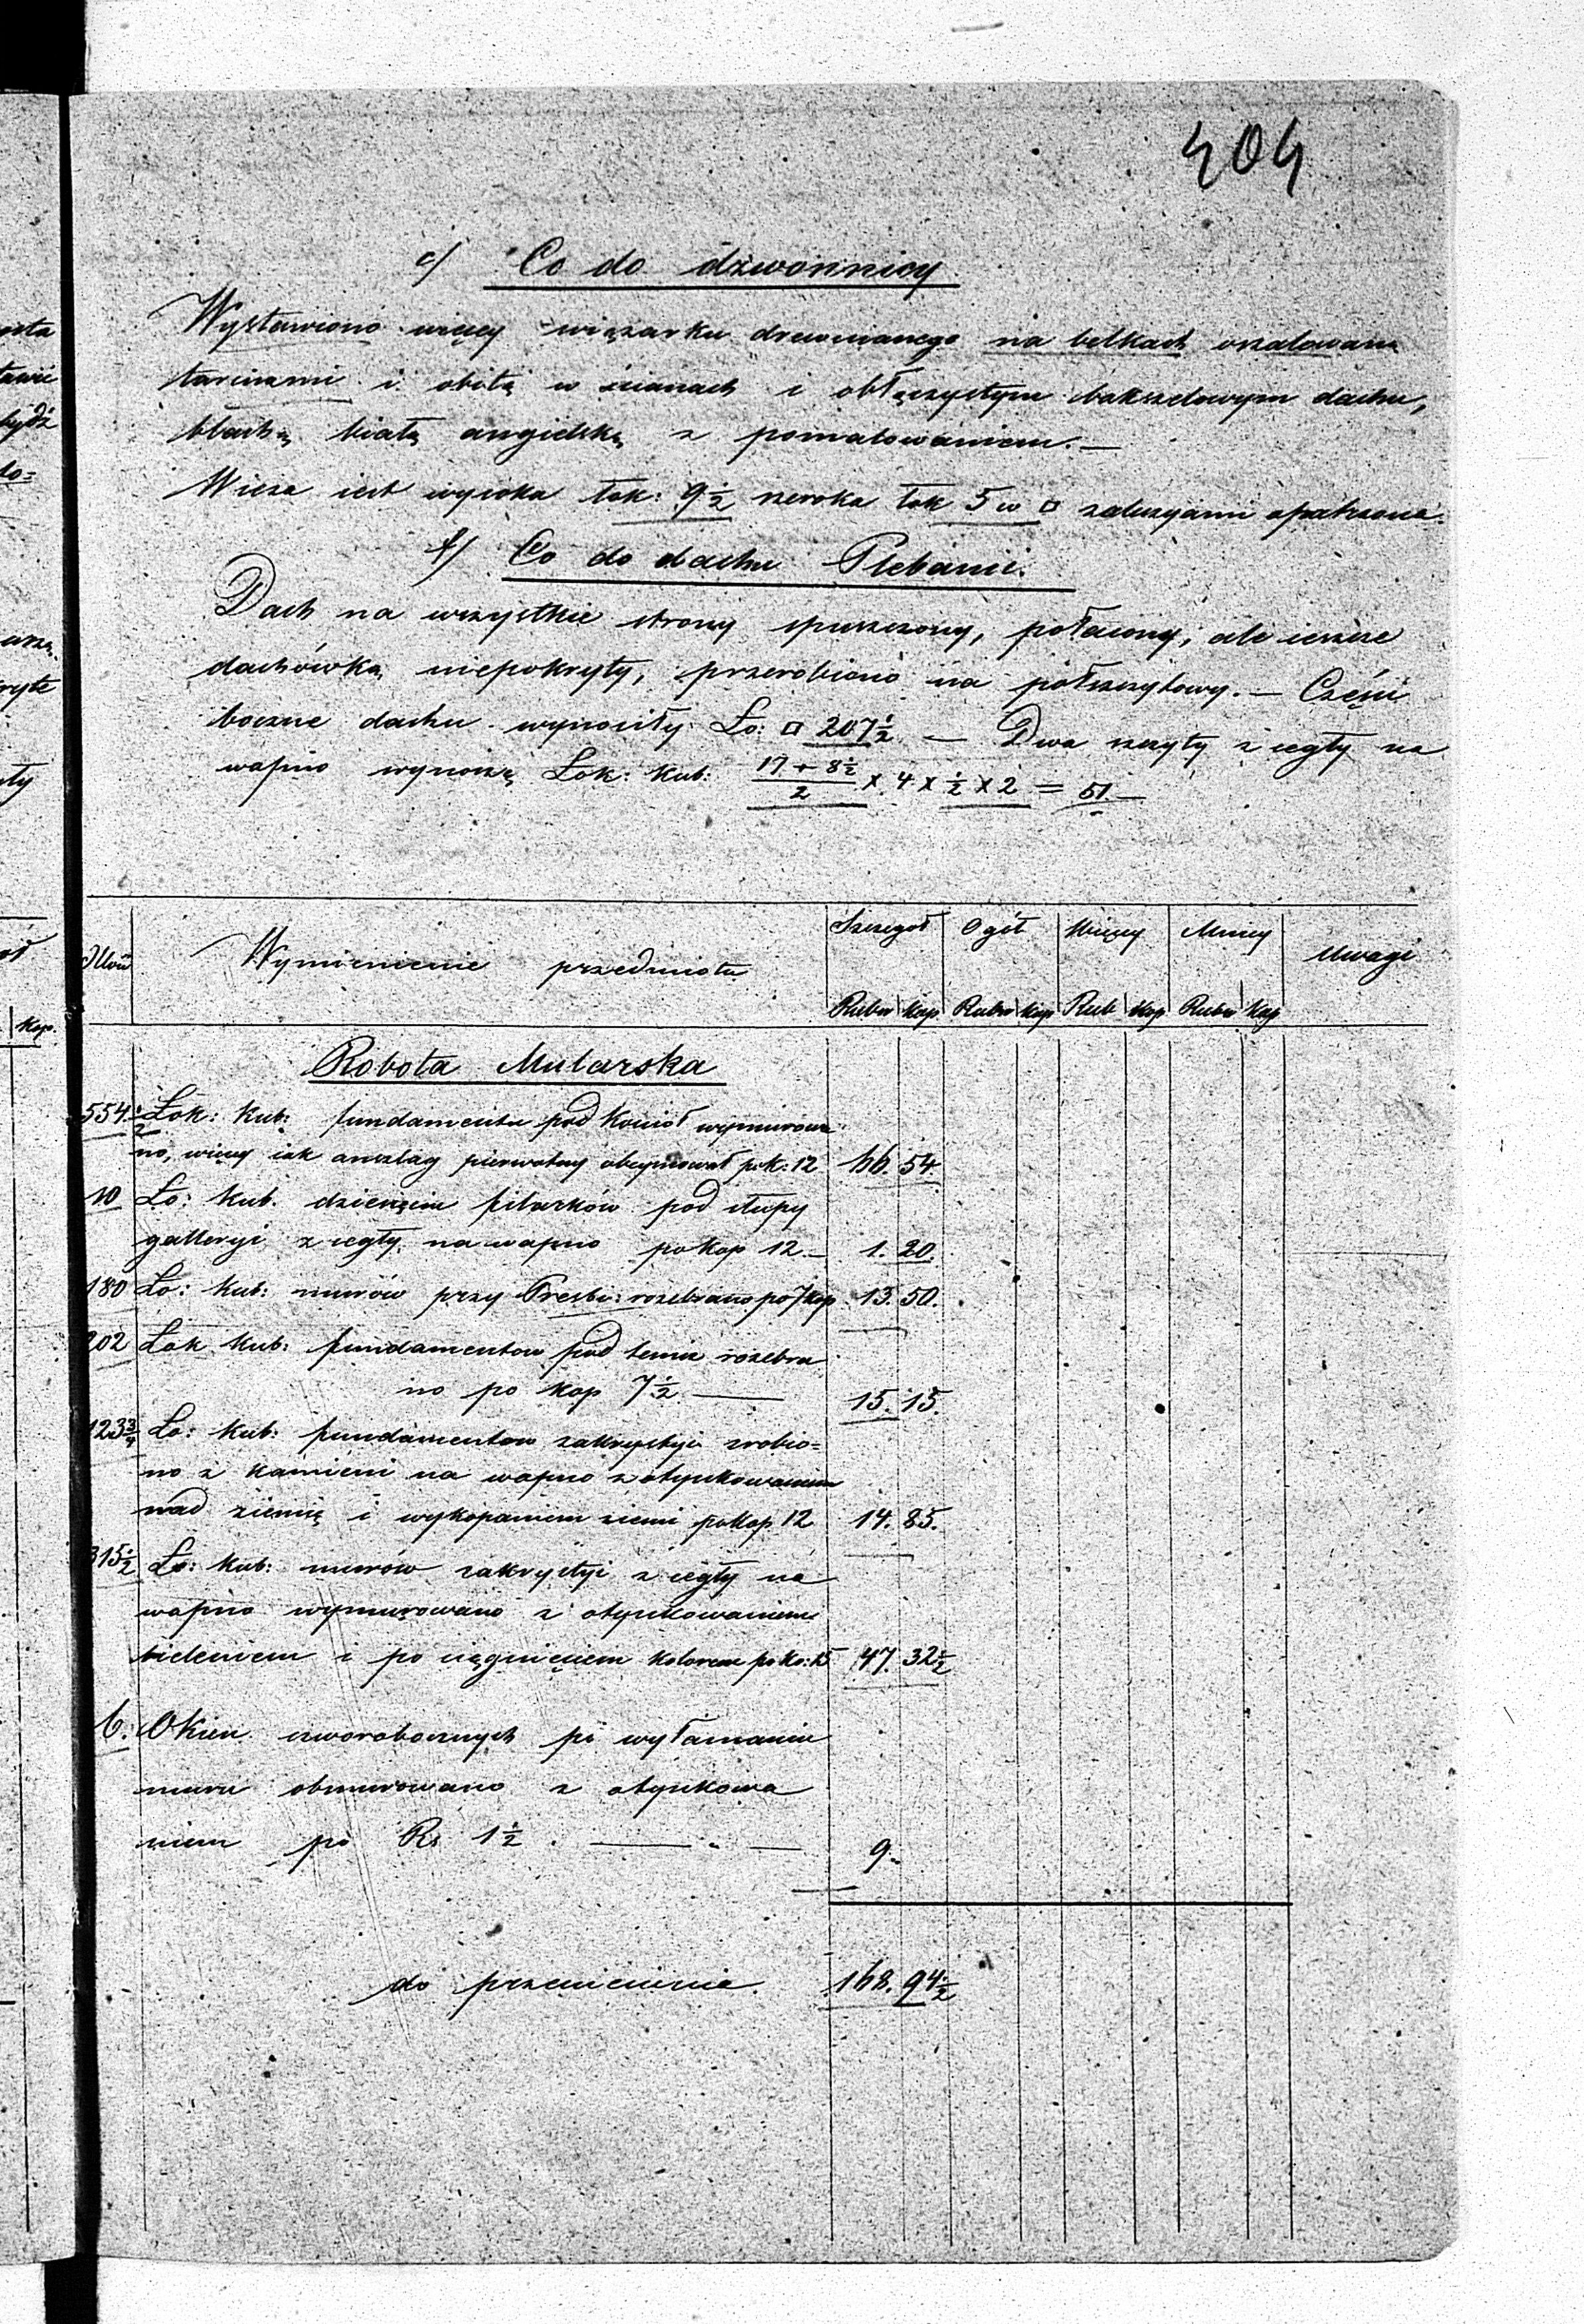 404
e/ Co do dzwonnicy
Wystawiono więcy wiązarku drewnianego na belkach oszalowaną
tarcicami i obitą w ścianach i obłączystym bakszelowym dachu,
blachą białą angielską z pomalowaniem. —
Wieża iest wysoka łok: 9 1/2 szeroka łok 5 w □ żaluzyami opatrzona.
f/ Co do dachu Plebanii.
Dach na wszystkie strony spuszczony, połacony, ale ieszcze
dachówką niepokryty, przerobiono na półszczytowy. — Częśći
boczne dachu wynosiły Ło: □ 207 1/2 — Dwa szczyty z cegły na
wapno wynoszą Łok: kub: (17 + 8 1/2)/2 x 4 x 1/2 x 2 = 51. —
Wymienienie przedmiotu
Szczegół Ogół Więcy Mniey Uwagi
Rubw kop Rubw kop Rub kop Rubw kop
kop.
Robota Mularska
554 1/2 Łok: kub: fundamentu pod Kośiół wymurowa
no, więcy iak anszlag pierwotny obeymował p. k: 12 66. 54
10 Ło: kub. dzieśięciu filarków pod słupy
galleryi z cegły na wapno po kop 12 — 1. 20.
180 Ło: kub: murów przy Presbi: rozebrano po 7 kop 13. 50.
202 Łok kub: fundamentow pod temiż rozebra
no po kop 7 1/2 — 15. 15.
123 3/4 Ło: kub: fundamentow zakrystyi zrobio=
no z kamieni na wapno z otynkowaniem
nad ziemię i wykopaniem ziemi po kop 12 14. 85.
315 1/2 Ło: kub: murów zakrystyi z cegły na
wapno wymurowano z otynkowaniem
bieleniem i po ciągnięciem kolorem po ko: 15 47. 32 1/2
6. Okien czworobocznych po wyłamaniu
muru obmurowano z otynkowa
niem po Rs 1 1/2 . — 9.
do przeniesienia. 168. 94 1/2